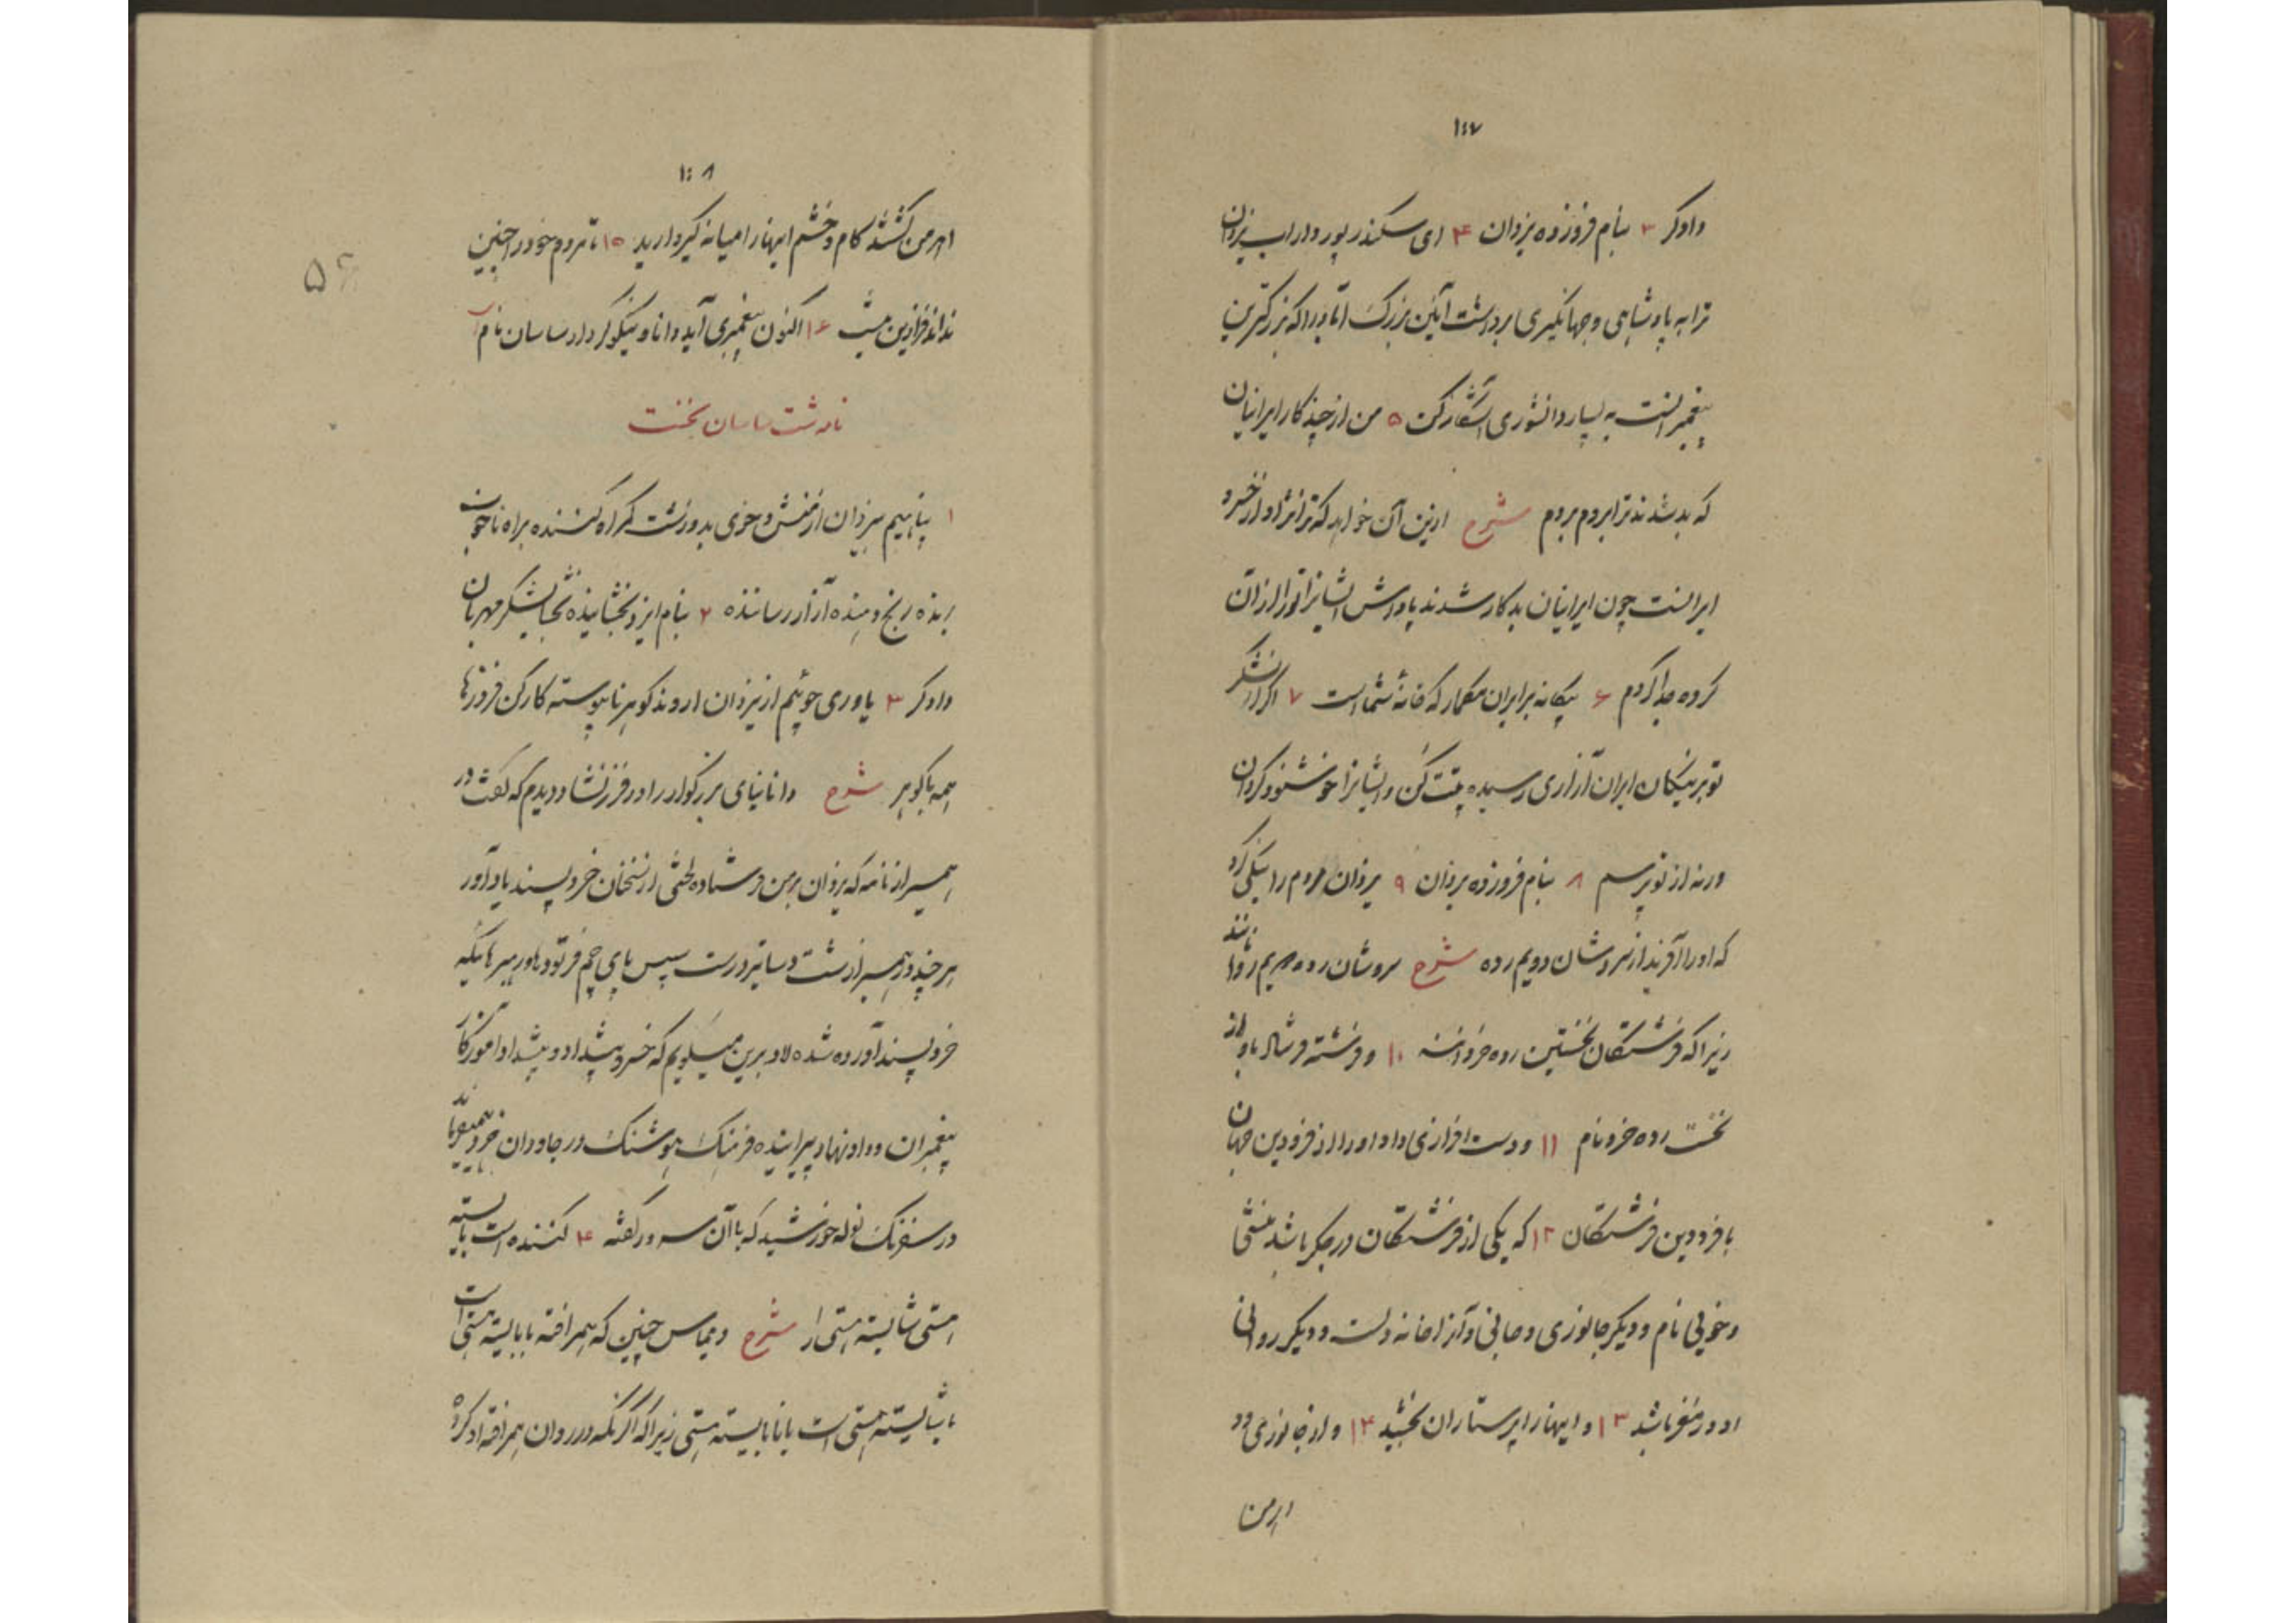 ۱۰۷
دادگر ۳ بنام فروزنده یزدان ۴ ای سکندر پور داراب یزدان
ترا به پادشاهی و جهانگیری برداشت آئین بزرگ آباد را که بزرگترین
پیغمبرانست به بسیار دانشوری آشکار کن ۵ من از چند کار ایرانیان
که بد شدند ترا بروم بردم شرح ازین آن خواهد که ترا نژاد از خسرو
ایرانست چون ایرانیان بدکار شدند پاداش ایشانرا تو را از آن
گروه جدا کردم ۶ بیگانه بر ایران مگمار که خانه شماست ۷ اگر از لشکر
تو بر نیکان ایران آزاری رسیده پتت کن و ایشانرا خوشنود گردان
ورنه از تو پرسم ۸ بنام فروزنده یزدان ۹ یزدان مردم را نیکی کرد
که او را آفرید از سروشان دویم رده شرح سروشان رده دویم روانند
زیرا که فرشتگان نخستین رده خردانند ۱۰ و فرشته فرستاد با او از
نخست رده خرد نام ۱۱ و دست افزاری داد او را از فرودین جهان
با فرودین فرشتگان ۱۲ که یکی از فرشتگان در جگر باشد منشی
و خوئی نام و دیگر جانوری و جانی و آنرا خانه دلست و دیگر روانی
او در مغز باشد ۱۳ و اینها را پرستاران بخشید ۱۴ و از جانوری دو
اهرمن
۱۰۸
اهرمن کشند کام و خشم اینها را میانه گیر دارید ۱۵ تا مردم خود را چنین
نداند فرازین مینب ۱۶ اکنون پیغمبری آید دانا و نیکو کردار ساسان نام
نامه شت ساسان نخست
۱ پناهیم بیزدان از منش و خوی بد و زشت گمراه کننده براه ناخوب
برنده رنج دهنده آزار رساننده ۲ بنام ایزد بخشاینده بخشایشگر مهربان
دادگر ۳ یاوری جوئیم از یزدان اروند گوهر ناپیوسته کار کن فروزها
همه با گوهر شرح دانا نیای بزرگوار را در فرزنشاد دیدم که گفت در
همیراز نامه که یزدان بر من فرستاده لختی از سخنان خرد پسند یاد آور
هر چند در همیراز شت دساتیر درست سپس بای چم فرتود هاور هیرهائیکه
خرد پسند آورده شده لاد برین میگویم که خسرو پیشداد و پیشداد آموزگار
پیغمبران و داد و نهاد پیراینده فرهنگ هوشنگ در جاودان خرد
در سفرنگ نوله خورشید که با آن سمرور گفته ۴ کننده است بایسته
هستی شایسته هستی را شرح دیماس چنین که همرافته یا بایسته هستی است
یا شایسته هستی است یا نابایسته هستی زیرا که اگر نگه در روان همرافته او کرده